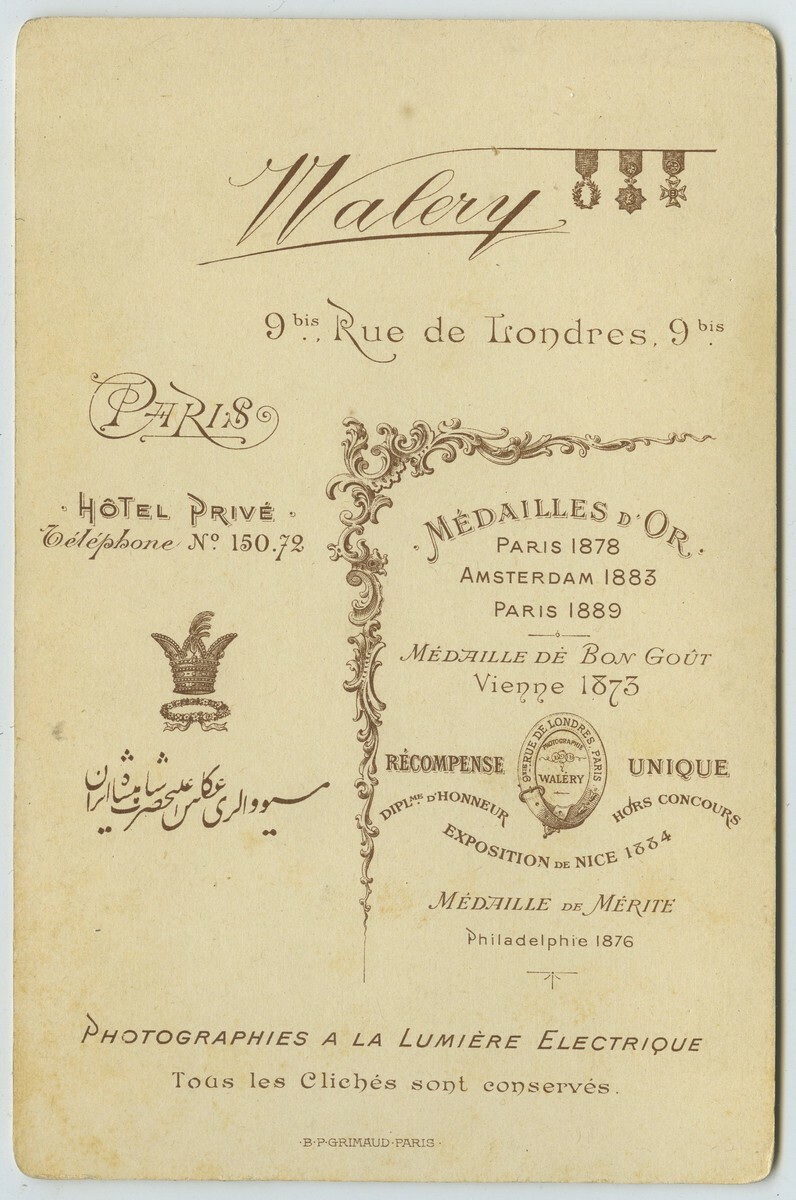 Walery
9bis Rue de Londres, 9bis
PARIS
HÔTEL PRIVÉ
Téléphone No 150.72
مسیو والری عکاس علیحضرت شاهنشاه ایران
MÉDAILLES D'OR
PARIS 1878
AMSTERDAM 1883
PARIS 1889
MÉDAILLE DE BON GOÛT
Vienne 1873
RÉCOMPENSE UNIQUE
9BIS RUE DE LONDRES. PARIS
PHOTOGRAPHIE
WALÉRY
DIPLME D'HONNEUR HORS CONCOURS
EXPOSITION DE NICE 1884
MÉDAILLE DE MÉRITE
Philadelphie 1876
PHOTOGRAPHIES A LA LUMIÈRE ELECTRIQUE
Tous les Clichés sont conservés.
·B·P·GRIMAUD·PARIS·